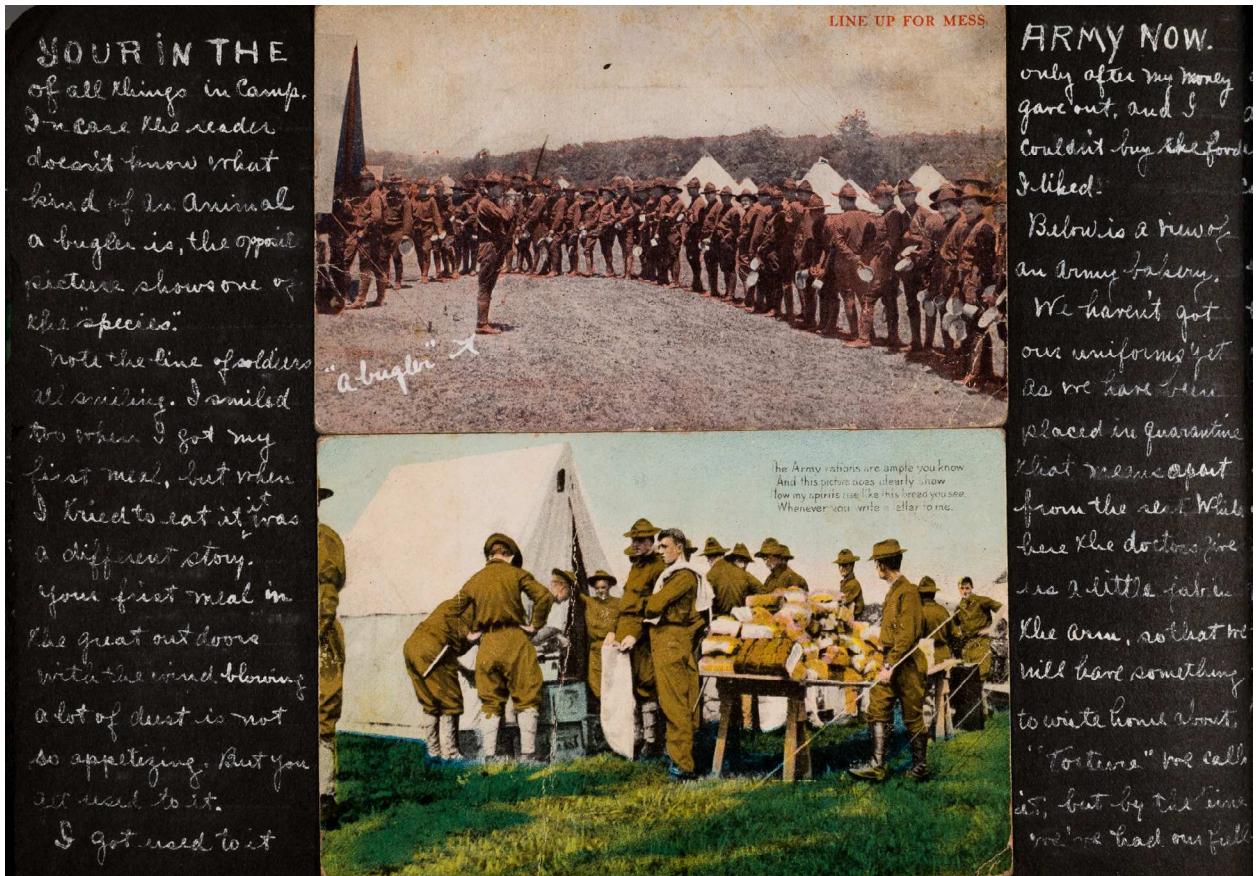 YOUR IN THE
of all things in Camp.
In case the reader
doesn't know what
kind of an Animal
a bugler is, the opposite
picture shows one of
the "species".
Note the line of soldiers
all smiling. I smiled
too when I got my
first meal, but when
I tried to eat it, it was
a different story.
Your first meal in
the great outdoors
with the wind blowing
a lot of dust is not
so appetizing. But you
get used to it.
I got used to it
LINE UP FOR MESS
"a bugler"
The Army rations are ample you know
And this picture does clearly show
How my spirits rise like this bread you see,
Whenever you write a letter to me.
ARMY NOW.
only after my money
gave out, and I
couldn't buy the food
I liked!
Below is a view of
an Army bakery.
We haven't got
our uniforms yet
as we have been
placed in quarantine
that means apart
from the rest. While
here the doctors give
us a little jab in
the arm, so that we
will have something
to write home about.
"Torture" we call
it, but by the time
we've had our full